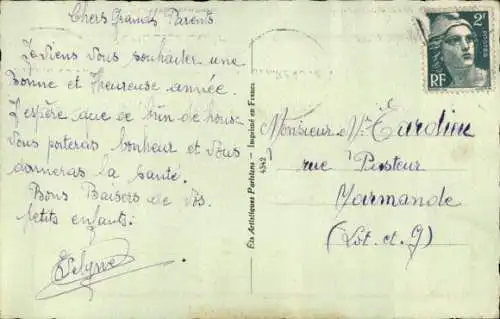 Chers Grands Parents
Je viens vous souhaiter une
Bonne et Heureuse année.
J'espère que ce brin de houx
vous portera bonheur et vous
donnera la santé.
Bons Baisers de vos
petits enfants.
Éts Artistiques Parisiens - Imprimé en France
4342
2F
RF
Monsieur
rue Pasteur
Marmande
(Lot. et. G)